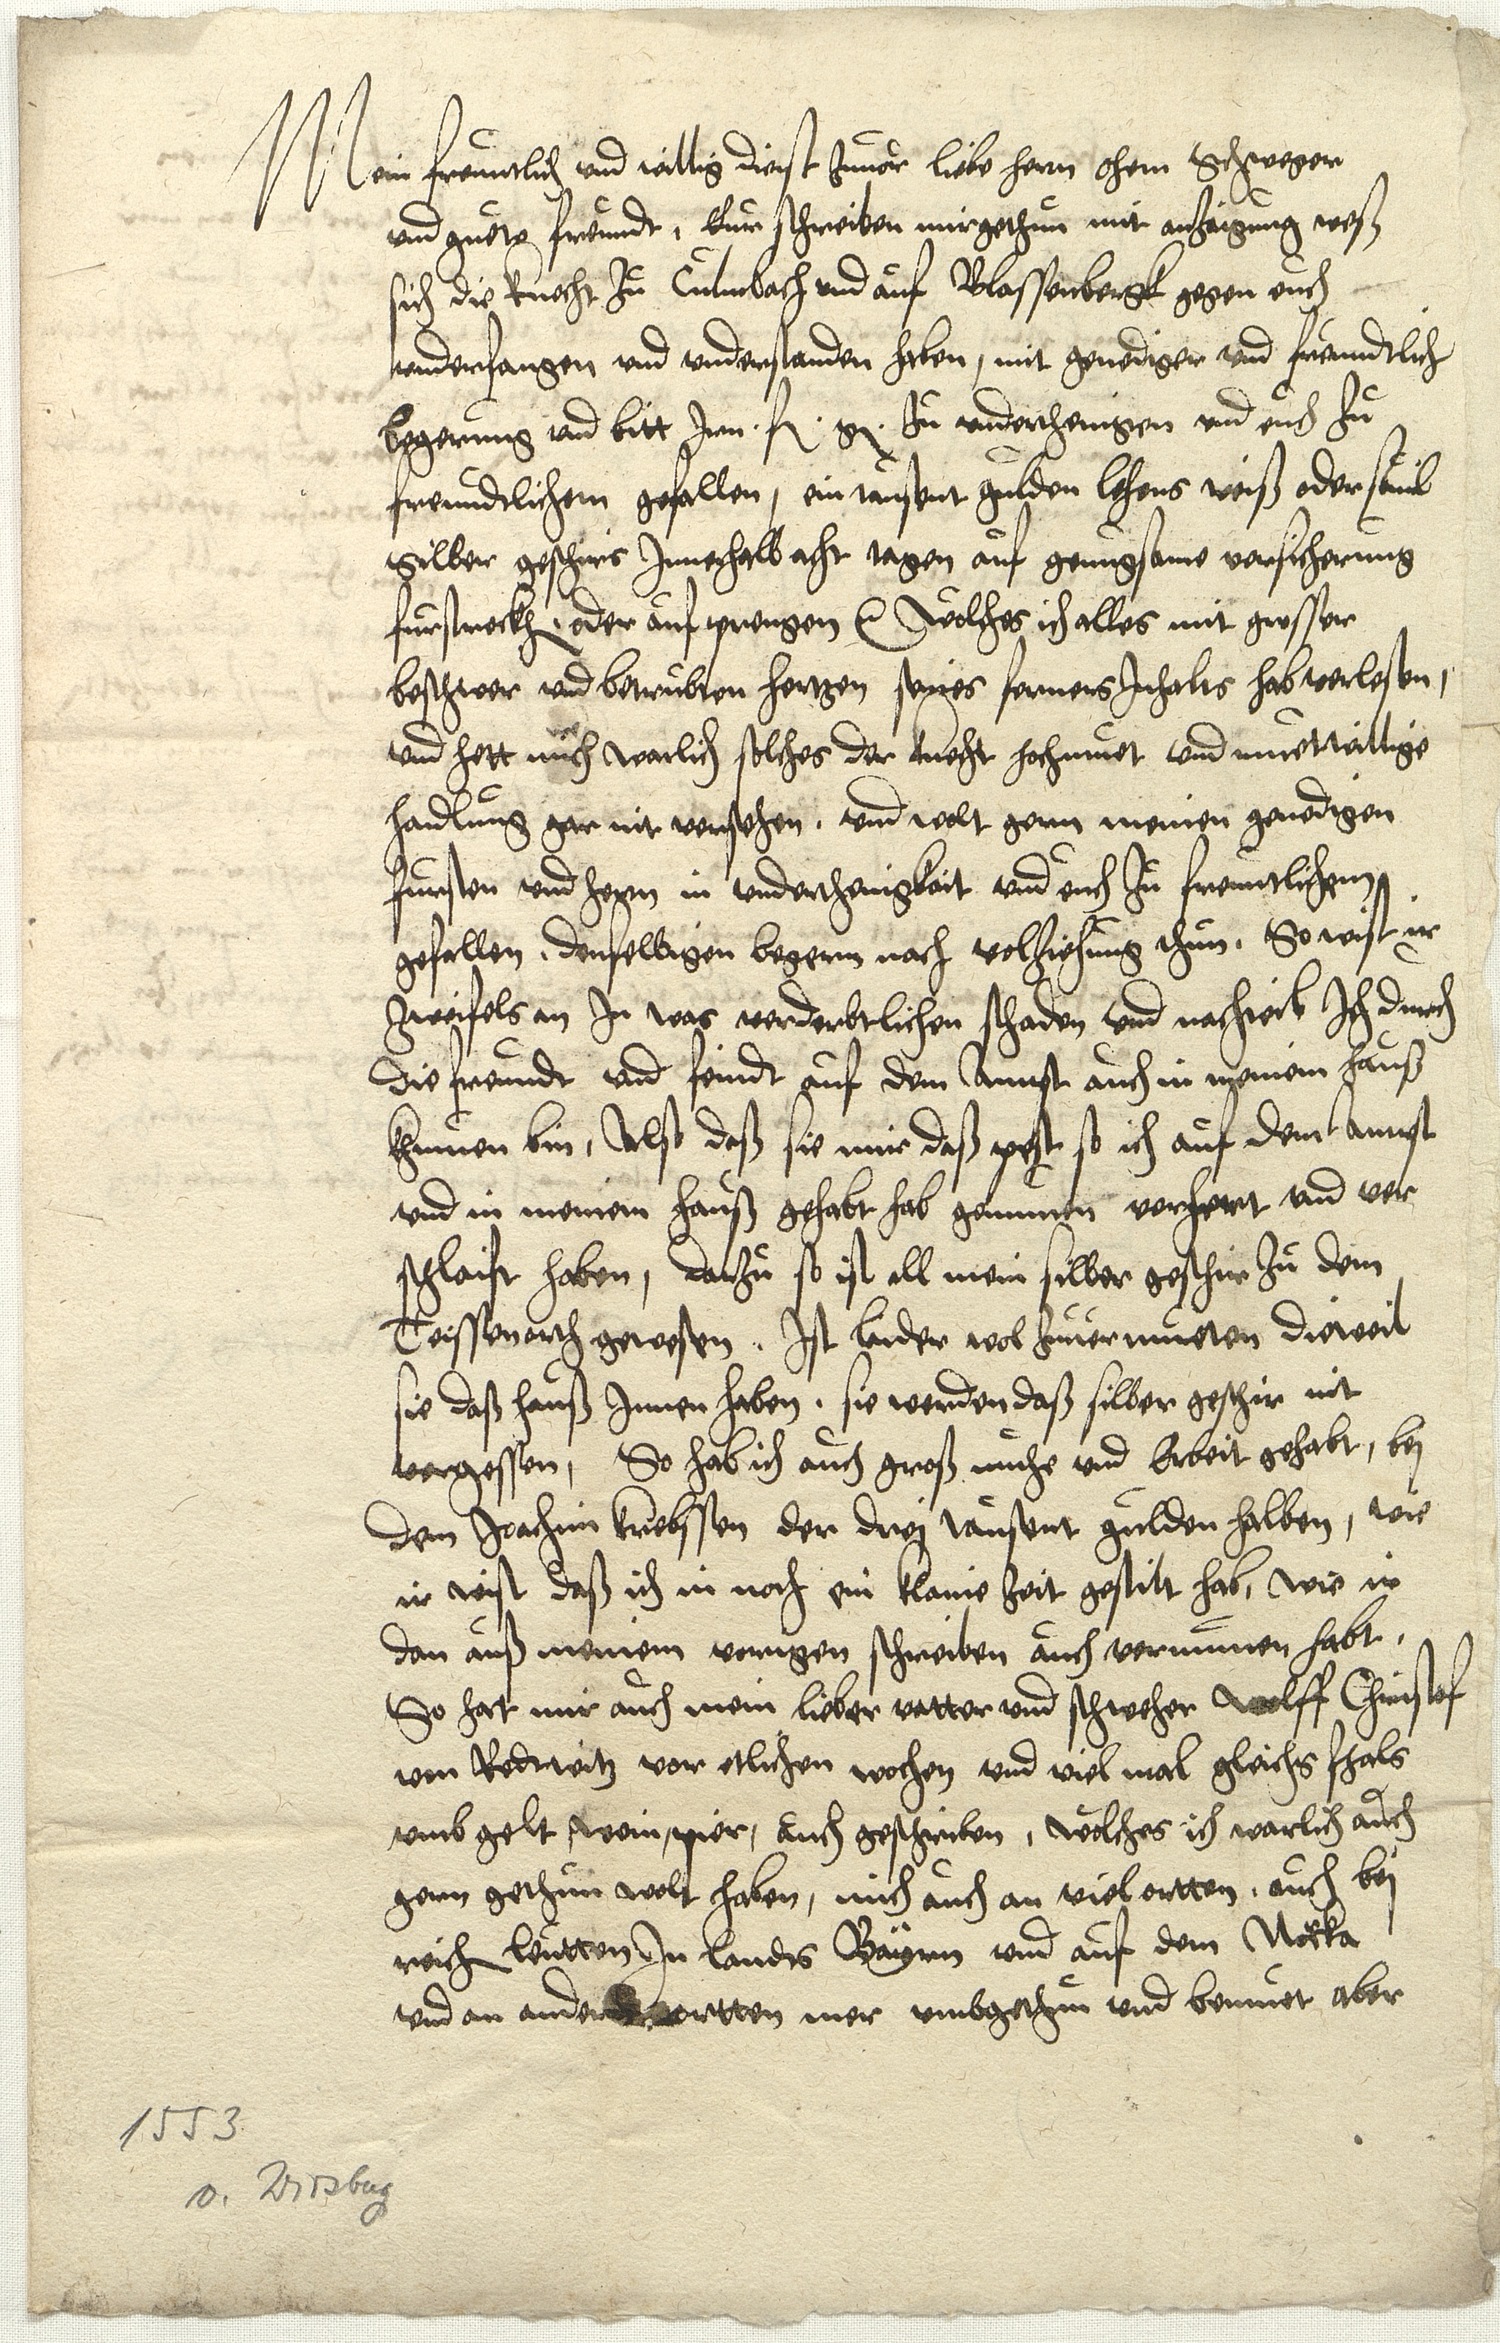 Mein freuntlich und willig dienst zuuor liebe herrn ohem Schweger
und guete freundt, Eur schreiben mir gethun mit anzaigung wes
sich die knecht zu Culmbach und auf Blassenbergk gegen euch
underfangen und understanden haben, mit genediger und freundtlich
begerung und bitt Irn. f. g. zu underthenigen und euch zu
freundtlichem gefallen, ein tausent gulden lehens weiß oder souil
Silber geschirs Innerhalb acht tagen auf genugsame versicherung
furstreckh, oder aufprengen Wölches ich alles mit grosser
beschwer und betrubten hertzen seines ferners Inhalts hab verlesen,
und hett mich warlich solches der knecht hochmuet und muetwillige
handlung gar nit versehen. und wolt gern meinen genedigen
fursten und hern in underthenigkeit und euch zu freuntlichem
gefallen, denselbigen begern nach volziehung thun. So wist ir
zweifels on In was verderbtlichen schaden und nachteil Ich durch
die freundt und feindt auf dem Ampt auch in meinem hauß
khumen bin, Also daß sie mir daß pest so ich auf dem Ampt
und in meinem hauß gehabt hab genummen verhert und ver
schlaift haben, darzu so ist all mein silber geschir zu dem
Teissenorth gewesen. Ist laider wol zuuermueten dieweil
sie daß hauß Innen haben. sie werden daß silber geschir nit
vergessen, So hab ich auch groß muhe und Arbeit gehabt, bej
dem Joachim krebssen der drej tausent gulden halben, wie
ir wist daß ich in noch ein klaine zeit gestilt hab, wie ir
dan auß meinem vorigen schreiben auch vernumen habt.
So hat mir auch mein lieber vatter und schweher Wolff Christof
von Redwitz vor etlichen wochen und viel mal gleichs fhals
umb gelt, wein, pier, auch geschrieben, wölches ich warlich auch
gern gethun wolt haben, mich auch an viel ortten, auch bej
reich leutten In lands Bayrn und auf dem Nöcka
und an andern ortten mer umbgethun und bemuet aber
1553
v. Wirsbug